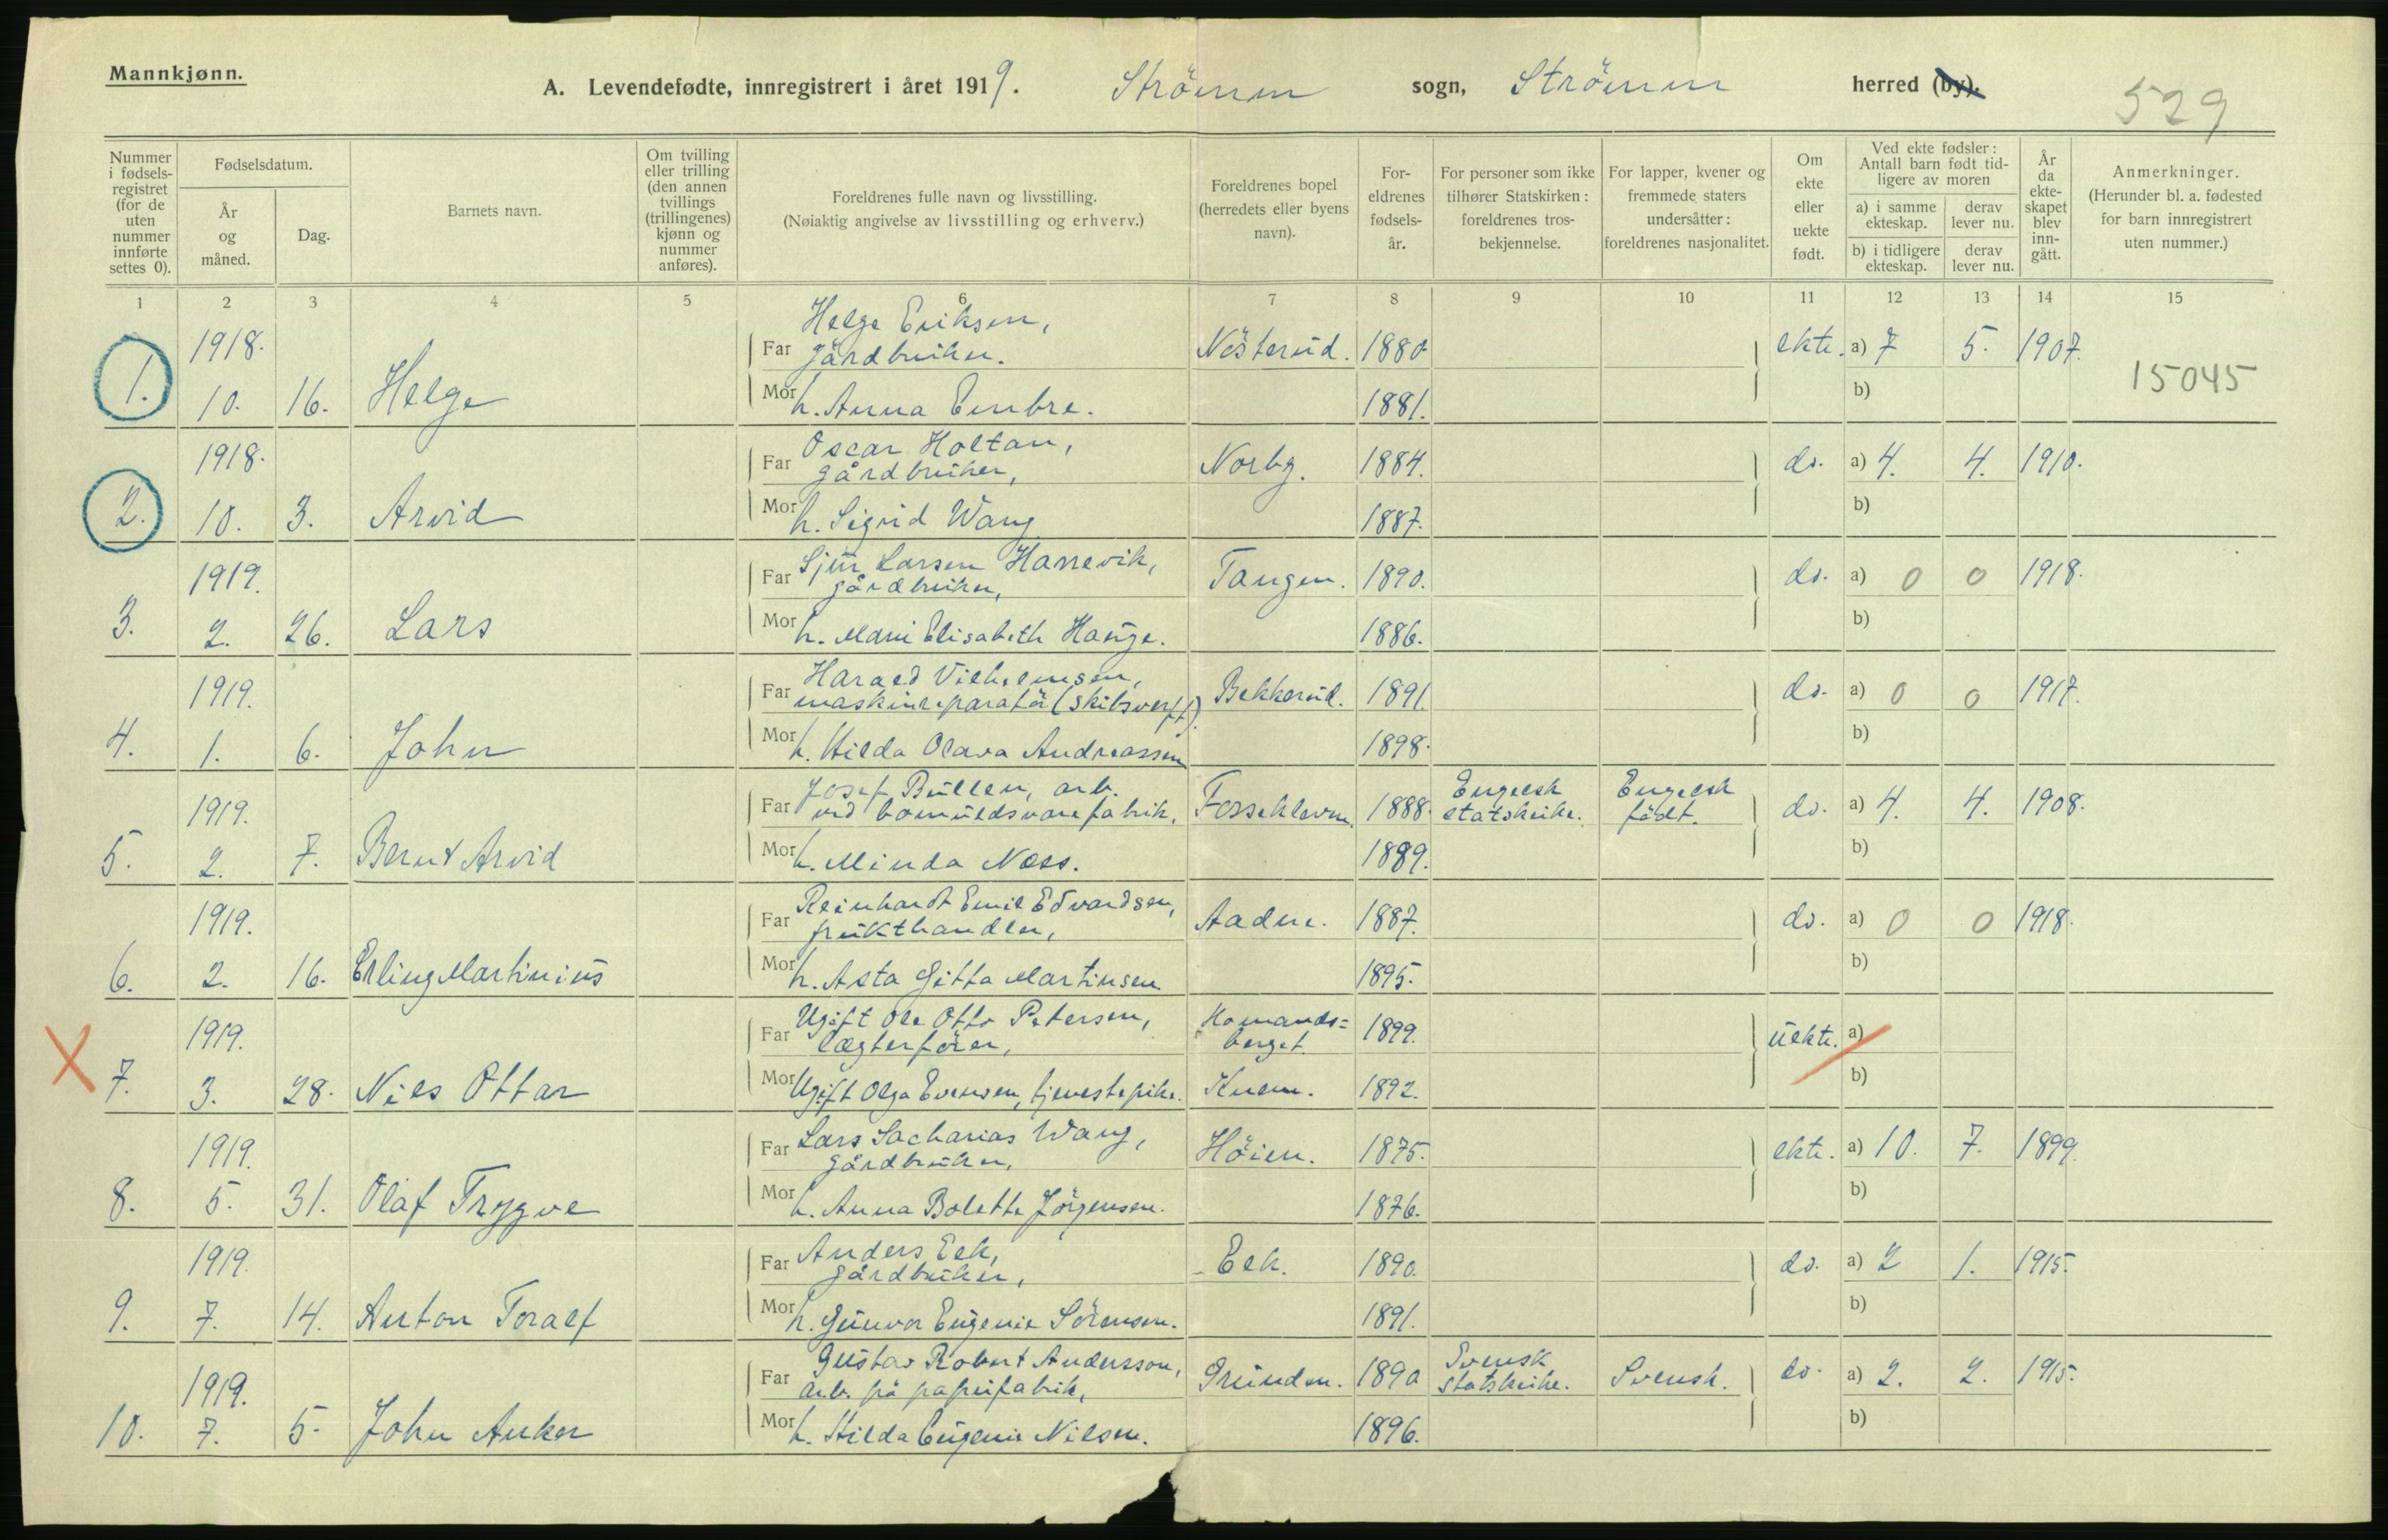 Mannkjønn.
A. Levendefødte, innregistrert i året 1919. Strömm sogn, Strömm herred (by).
529
Nummer i fødsels-registret (for de uten nummer innførte settes 0).
Fødselsdatum.
År og måned.
Dag.
Barnets navn.
Om tvilling eller trilling (den annen tvillings (trillingenes) kjønn og nummer anføres).
Foreldrenes fulle navn og livsstilling.
(Nøiaktig angivelse av livsstilling og erhverv.)
Foreldrenes bopel (herredets eller byens navn).
For-eldrenes fødsels-år.
For personer som ikke tilhører Statskirken: foreldrenes tros-bekjennelse.
For lapper, kvener og fremmede staters undersåtter: foreldrenes nasjonalitet.
Om ekte eller uekte født.
Ved ekte fødsler: Antall barn født tid-ligere av moren
a) i samme ekteskap. derav lever nu.
b) i tidligere ekteskap. derav lever nu.
År da ekte-skapet blev inn-gått.
Anmerkninger.
(Herunder bl. a. fødested for barn innregistrert uten nummer.)
1 2 3 4 5 6 7 8 9 10 11 12 13 14 15
1. 1918. 10. 16. Helge
Far Helge Eriksen, gårdbruker. Nösterud. 1880 ekte. a) 7 5. 1907.
Mor h. Anna Embre. 1881. b)
15045
2. 1918. 10. 3. Arvid
Far Oscar Holtan, gårdbruker, Norbg. 1884. do. a) 4. 4. 1910.
Mor h. Sigrid Wang 1887. b)
3. 1919. 2. 26. Lars
Far Sjur Larsen Hanevik, gårdbruker, Tangen. 1890. do. a) 0 0 1918.
Mor h. Marie Elisabeth Hauge. 1886. b)
4. 1919. 1. 6. John
Far Harald Vilhelmsen, maskinreparatör (skibsverft). Bekkerud. 1891. do. a) 0 0 1917.
Mor h. Hilda Olava Andreassen 1898. b)
5. 1919. 2. 7. Bernt Arvid
Far Josef Bullen, arb. ved bomuldsvarefabrik, Fosseklevm. 1888. Engelsk statskirke. Engelsk födt. do. a) 4. 4. 1908.
Mor h. Minda Næss. 1889. b)
6. 1919. 2. 16. Erling Martinius
Far Reinhardt Emil Edvardsen, frukthandler, Aadne. 1887. do. a) 0 0 1918.
Mor h. Asta Gitta Martinsen 1895. b)
X 7. 1919. 3. 28. Nils Ottar
Far Ugift Ole Otto Petersen, lægterförer, Homands=berget. 1899. uekte. a)
Mor Ugift Olga Evensen, tjenestepike. Knem. 1892. b)
8. 1919. 5. 31. Olaf Trygve
Far Lars Sacharias Wang, gårdbruker, Höien. 1875. ekte. a) 10. 7. 1899.
Mor h. Anna Bolette Jörgensen. 1876. b)
9. 1919. 7. 14. Anton Toralf
Far Anders Eek, gårdbruker, Eek. 1890. do. a) 2 1. 1915.
Mor h. Gunvor Eugenie Sörensen. 1891. b)
10. 1919. 7. 5. John Anker
Far Gustav Robert Andersson, arb. på papirfabrik, Grunden. 1890 Svensk statskirke. Svensk. do. a) 2. 2. 1915.
Mor h. Hilda Eugenie Nilsen. 1896. b)